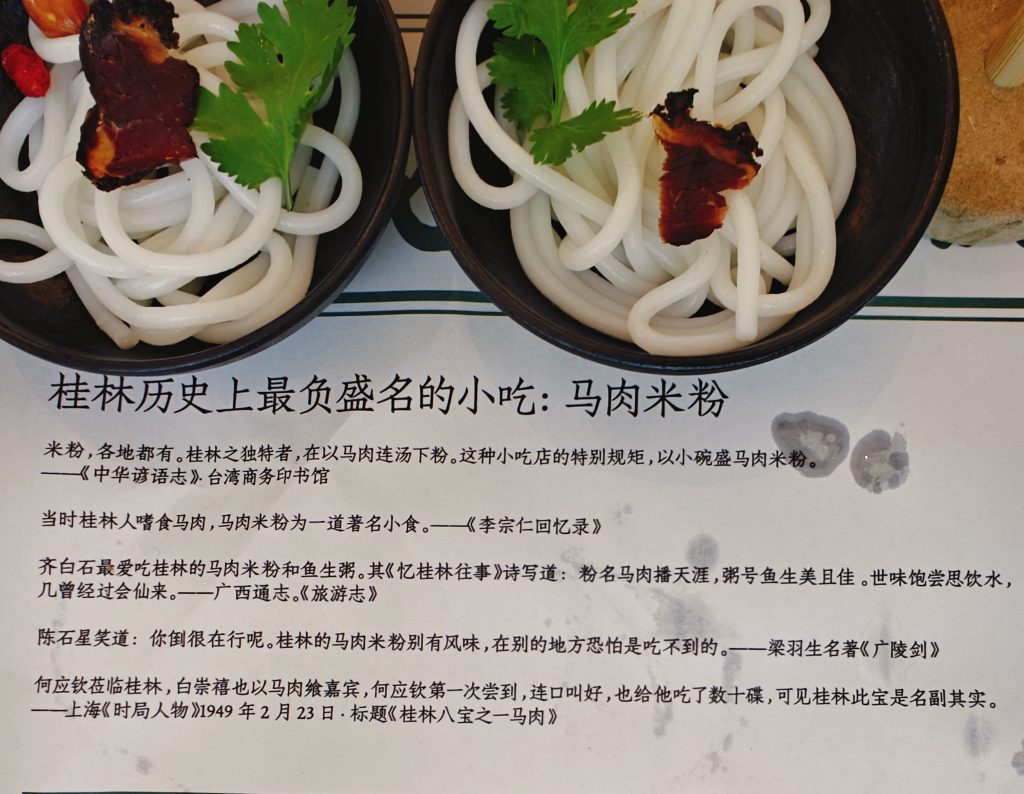 桂林历史上最负盛名的小吃：马肉米粉
米粉，各地都有。桂林之独特者，在以马肉连汤下粉。这种小吃店的特别规矩，以小碗盛马肉米粉。
——《中华谚语志》·台湾商务印书馆
当时桂林人嗜食马肉，马肉米粉为一道著名小食。——《李宗仁回忆录》
齐白石最爱吃桂林的马肉米粉和鱼生粥。其《忆桂林往事》诗写道：粉名马肉播天涯，粥号鱼生美且佳。世味饱尝思饮水，
几曾经过会仙来。——广西通志。《旅游志》
陈石星笑道：你倒很在行呢。桂林的马肉米粉别有风味，在别的地方恐怕是吃不到的。——梁羽生名著《广陵剑》
何应钦莅临桂林，白崇禧也以马肉飨嘉宾，何应钦第一次尝到，连口叫好，也给他吃了数十碟，可见桂林此宝是名副其实。
——上海《时局人物》1949年2月23日·标题《桂林八宝之一马肉》